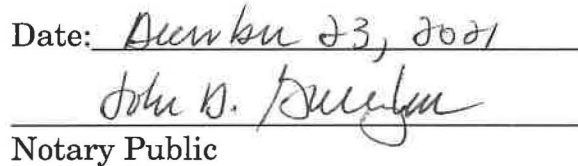 Date: December 23, 2021
John D.
Notary Public